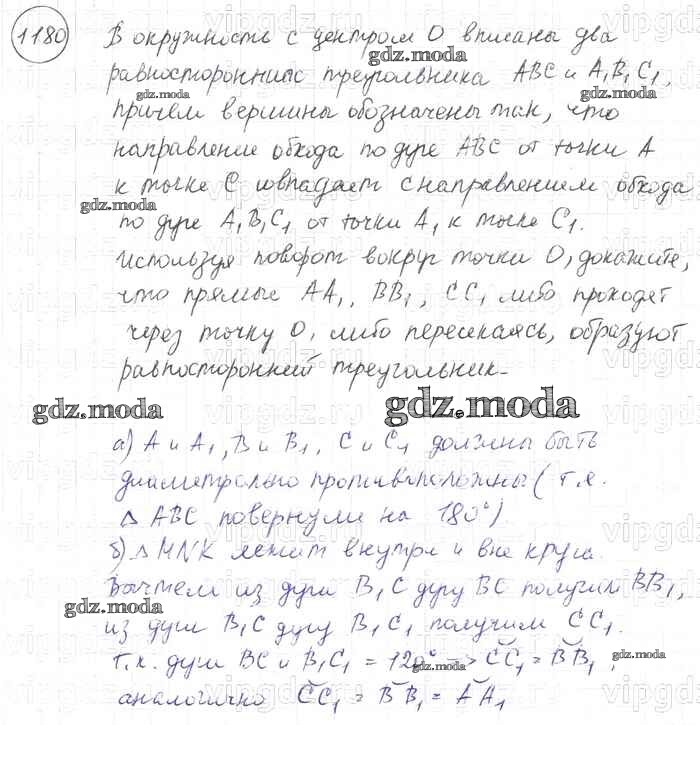 1180
В окружность с центром O вписаны два
равносторонних треугольника ABC и A₁B₁C₁,
причём вершины обозначены так, что
направление обхода по дуге ABC от точки A
к точке C совпадает с направлением обхода
по дуге A₁B₁C₁ от точки A₁ к точке C₁.
Используя поворот вокруг точки O, докажите,
что прямые AA₁, BB₁, CC₁ либо проходят
через точку O, либо пересекаясь, образуют
равносторонний треугольник.
а) A и A₁, B и B₁, C и C₁ должны быть
диаметрально противоположны (т.е.
△ ABC повернули на 180°).
б) △ MNK лежит внутри и вне круга.
Вычтем из дуги B₁C дугу BC получим BB₁,
из дуги B₁C дугу B₁C₁ получим CC₁.
т.к. дуги BC и B₁C₁ = 120° => CC₁ = BB₁,
аналогично CC₁ = BB₁ = AA₁
gdz.moda
gdz.moda
gdz.moda
gdz.moda
gdz.moda
gdz.moda
gdz.moda
gdz.moda
gdz.moda
gdz.moda